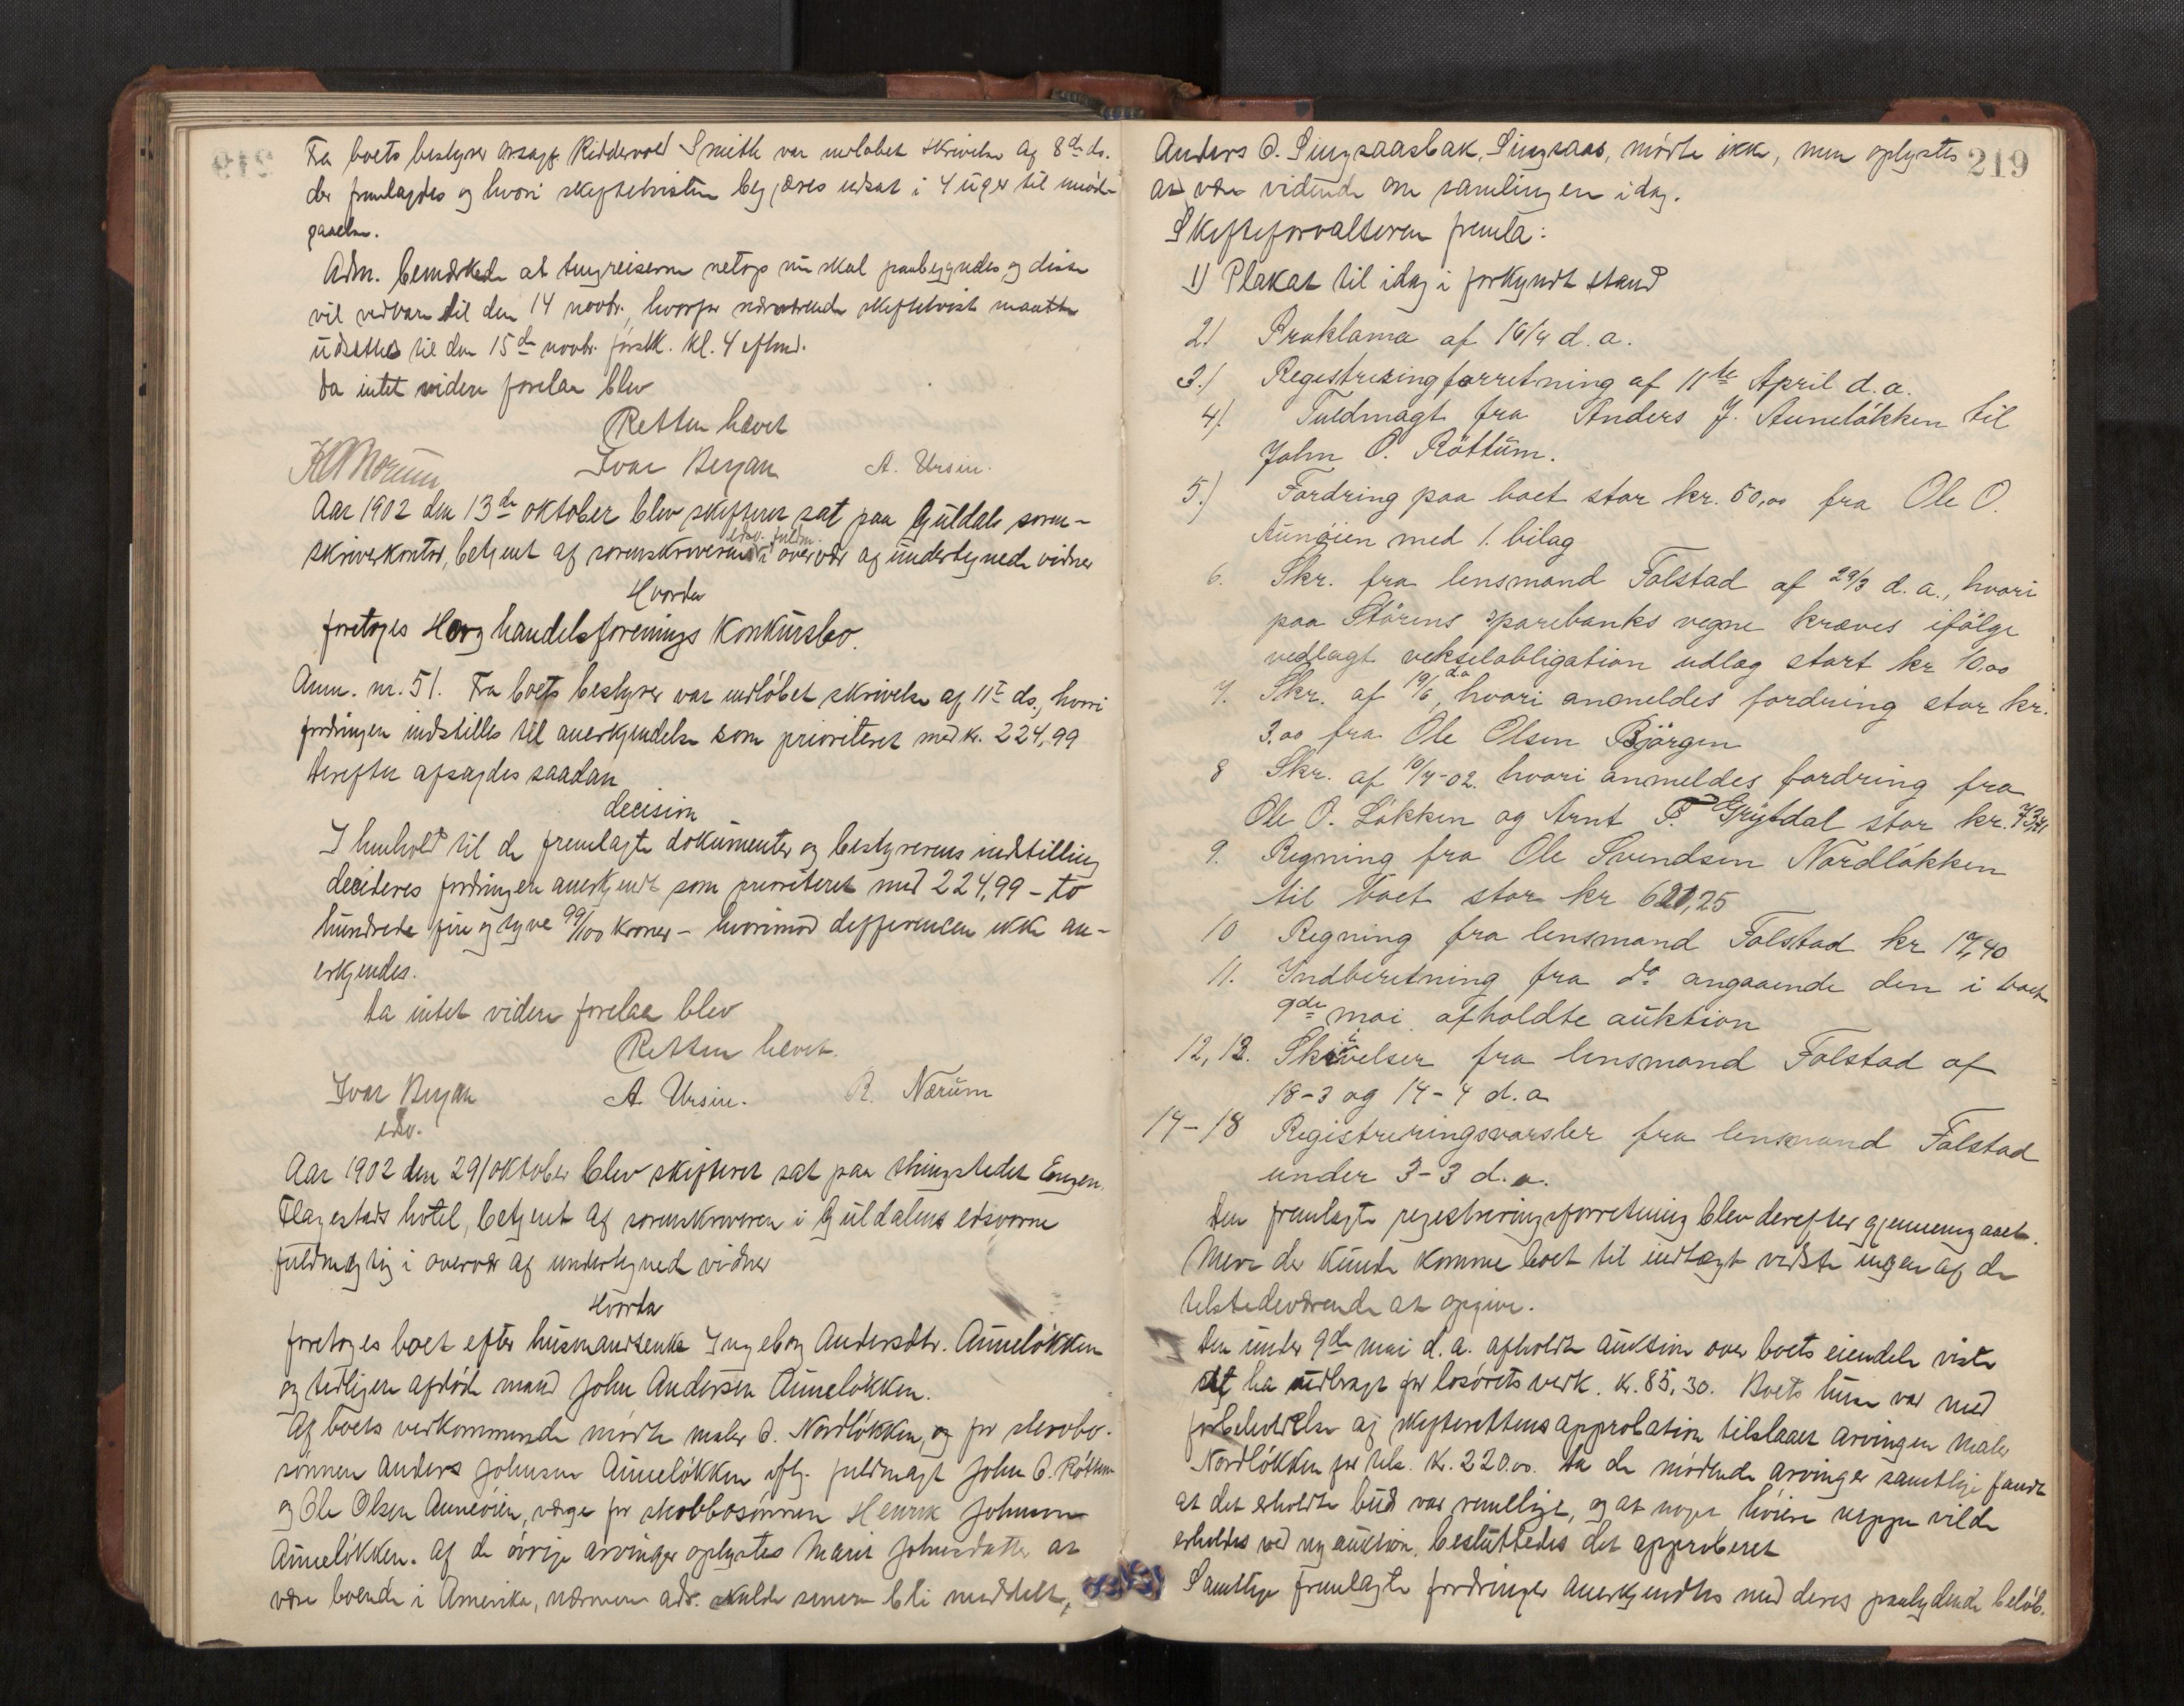 Fra boets bestyrer orsagf. Riddervold Smith var indløbet skrivelse af 8de ds.
der fremlagdes og hvori skiftetvisten begjæres udsat i 4 uger til møde-
gaaelse.
Adm. bemærkede at tingreiserne netop nu skal paabegyndes og disse
vil vedvare til den 14 novbr., hvorfor nærværende skiftetvist maatte
udsættes til den 15de novbr. førstk. kl. 4 eftmd.
Da intet videre forelaa blev
Retten hævet
Ivar Bergan A. Ursin.
Aar 1902 den 13de oktober blev skifteret sat paa Guldals soren-
skriverkontor, betjent af sorenskriverens edsv. fuldm. i overvær af undertegnede vidner
Hvorda
foretoges Horg handelsforenings konkursbo.
Anm. nr. 51. Fra boets bestyrer var indløbet skrivelse af 11te ds., hvori
fordringen indstilles til anerkjendelse som prioriteret med kr. 224,99
Derefter afsagdes saadan
decision
I henhold til de fremlagte dokumenter og bestyrerens indstilling
decideres fordringen anerkjendt som prioriteret med 224,99 – to
hundrede fire og tyve 99/100 kroner – hvorimod differencen ikke an-
erkjendes.
Da intet videre forelaa blev
Retten hævet.
Ivar Bergan A. Ursin. R. Nærum
edsv.
Aar 1902 den 29/oktober blev skifteret sat paa thingstedet Engen,
Flagestads hotel, betjent af sorenskriveren i Guldalens edsvorne
fuldmægtig i overvær af undertegnede vidner
Hvorda
foretoges boet efter husmandsenke Ingeborg Andersdtr. Auneløkken
og tidligere afdøde mand John Andersen Auneløkken.
Af boets vedkommende mødte maler O. Nordløkken, og for stervbo-
sønnen Anders Johnsen Auneløkken iflg. fuldmagt John O. Røttum
og Ole Olsen Auneøien, værge for stervbosønnen Henrik Johnsen
Auneløkken. Af de øvrige arvinger oplystes Marit Johnsdatter at
være boende i Amerika, nærmere adr. skulde senere bli meddelt,
219
Anders O. Singsaasbak, Singsaas, mødte ikke, men oplystes
at være vidende om samlingen idag.
Skifteforvalteren fremla:
1) Plakat til idag i forkyndt stand
2) Proklama af 16/4 d. a.
3.) Registreringsforretning af 11te April d. a.
4). Fuldmagt fra Anders J. Auneløkken til
John O. Røttum.
5.) Fordring paa boet stor kr. 50,00 fra Ole O.
Aunøien med 1. bilag
6. Skr. fra lensmand Folstad af 29/3 d. a., hvori
paa Størens sparebanks vegne kræves ifølge
vedlagt vekselobligation udlæg stort kr 10,00
7. Skr. af 19/6 d.a, hvori anmeldes fordring stor kr.
3,00 fra Ole Olsen Bjørgen
8 Skr. af 10/4-02. hvori anmeldes fordring fra
Ole O. Løkken og Arnt P. Grytdal stor kr.
9. Regning fra Ole Svendsen Nordløkken
til boet stor kr
10 Regning fra lensmand Folstad kr 17,40
11. Indberetning fra do angaaende den i boet
9de mai afholdte auktion
12, 13. Skrivelser fra lensmand Folstad af
18-3 og 14-4 d. a
14-18 Registreringsvarsler fra lensmand Folstad
under 3-3 d. a.
Den fremlagte registreringsforretning blev derefter gjennemgaaet.
Mere der kunde komme boet til indtægt vidste ingen af de
tilstedeværende at opgive.
Den under 9de mai d. a. afholdte auktion over boets eiendele viste
sig ha indbragt for løsørets vedk. kr. 85,30. Boets huse var med
forbeholdelse af skifterettens approbation tilslaaet arvingen maler
Nordløkken for tils. kr. 220.00. Da de mødende arvinger samtlige fandt
at det erholdte bud var rimeligt, og at noget høiere neppe vilde
erholdes ved ny auktion, besluttedes det approberet
Samtlige fremlagte fordringer anerkjendtes med deres paalydende beløb.